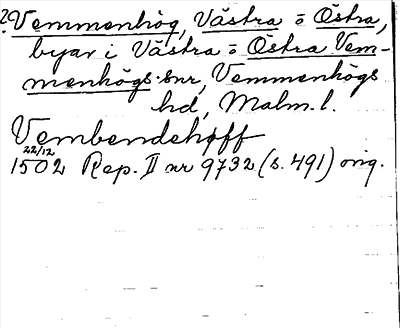 2. Vemmenhög, Västra o Östra,
byar i Västra o Östra Vem-
menhögs snr, Vemmenhögs
hd, Malm. l.
Vembendehøff
22/12
1502 Rep. II nr 9732 (s. 491) orig.